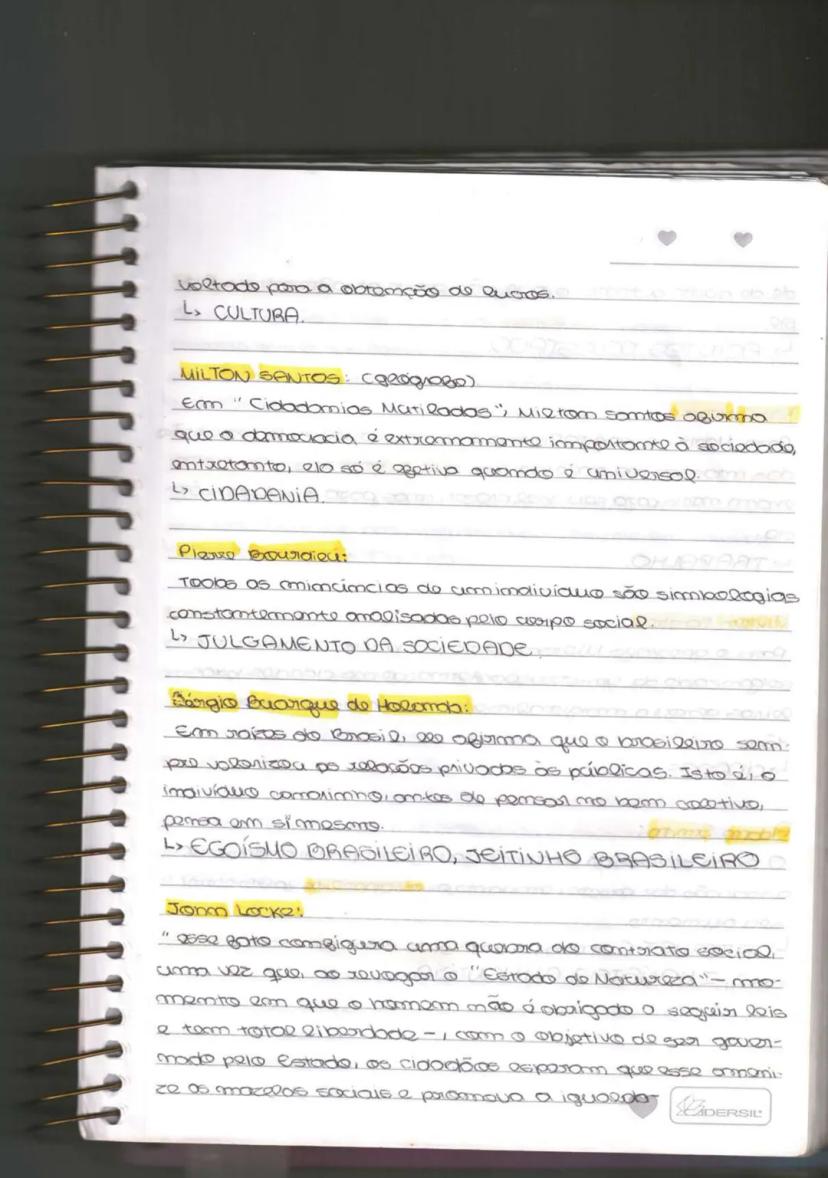 voltado para a obtenção de lucros.
↳ CULTURA.
MILTON SANTOS: (geógrafo)
Em "Cidadanias Mutiladas", Milton Santos afirma
que a democracia é extremamente importante à sociedade,
entretanto, ela só é efetiva quando é universal.
↳ CIDADANIA.
Pierre Bourdieu:
Todas as minúncias de um indivíduo são simbologias
constantemente analisadas pelo corpo social.
↳ JULGAMENTO DA SOCIEDADE.
Sérgio Buarque de Holanda:
Em raízes do Brasil, ele afirma que o brasileiro sem-
pre valorizou as relações privadas às públicas. Isto é, o
indivíduo canarinho, antes de pensar no bem coletivo,
pensa em si mesmo.
↳ EGOÍSMO BRASILEIRO, JEITINHO BRASILEIRO
Jonh Locke:
"esse fato configura uma quebra do contrato social,
uma vez que, ao revogar o "Estado de Natureza" – mo-
mento em que o homem não é obrigado a seguir leis
e tem total liberdade –, com o objetivo de ser gover-
nado pelo Estado, os cidadãos esperam que esse ameni-
ze as mazelas sociais e promova a igualda-
IDERSIL